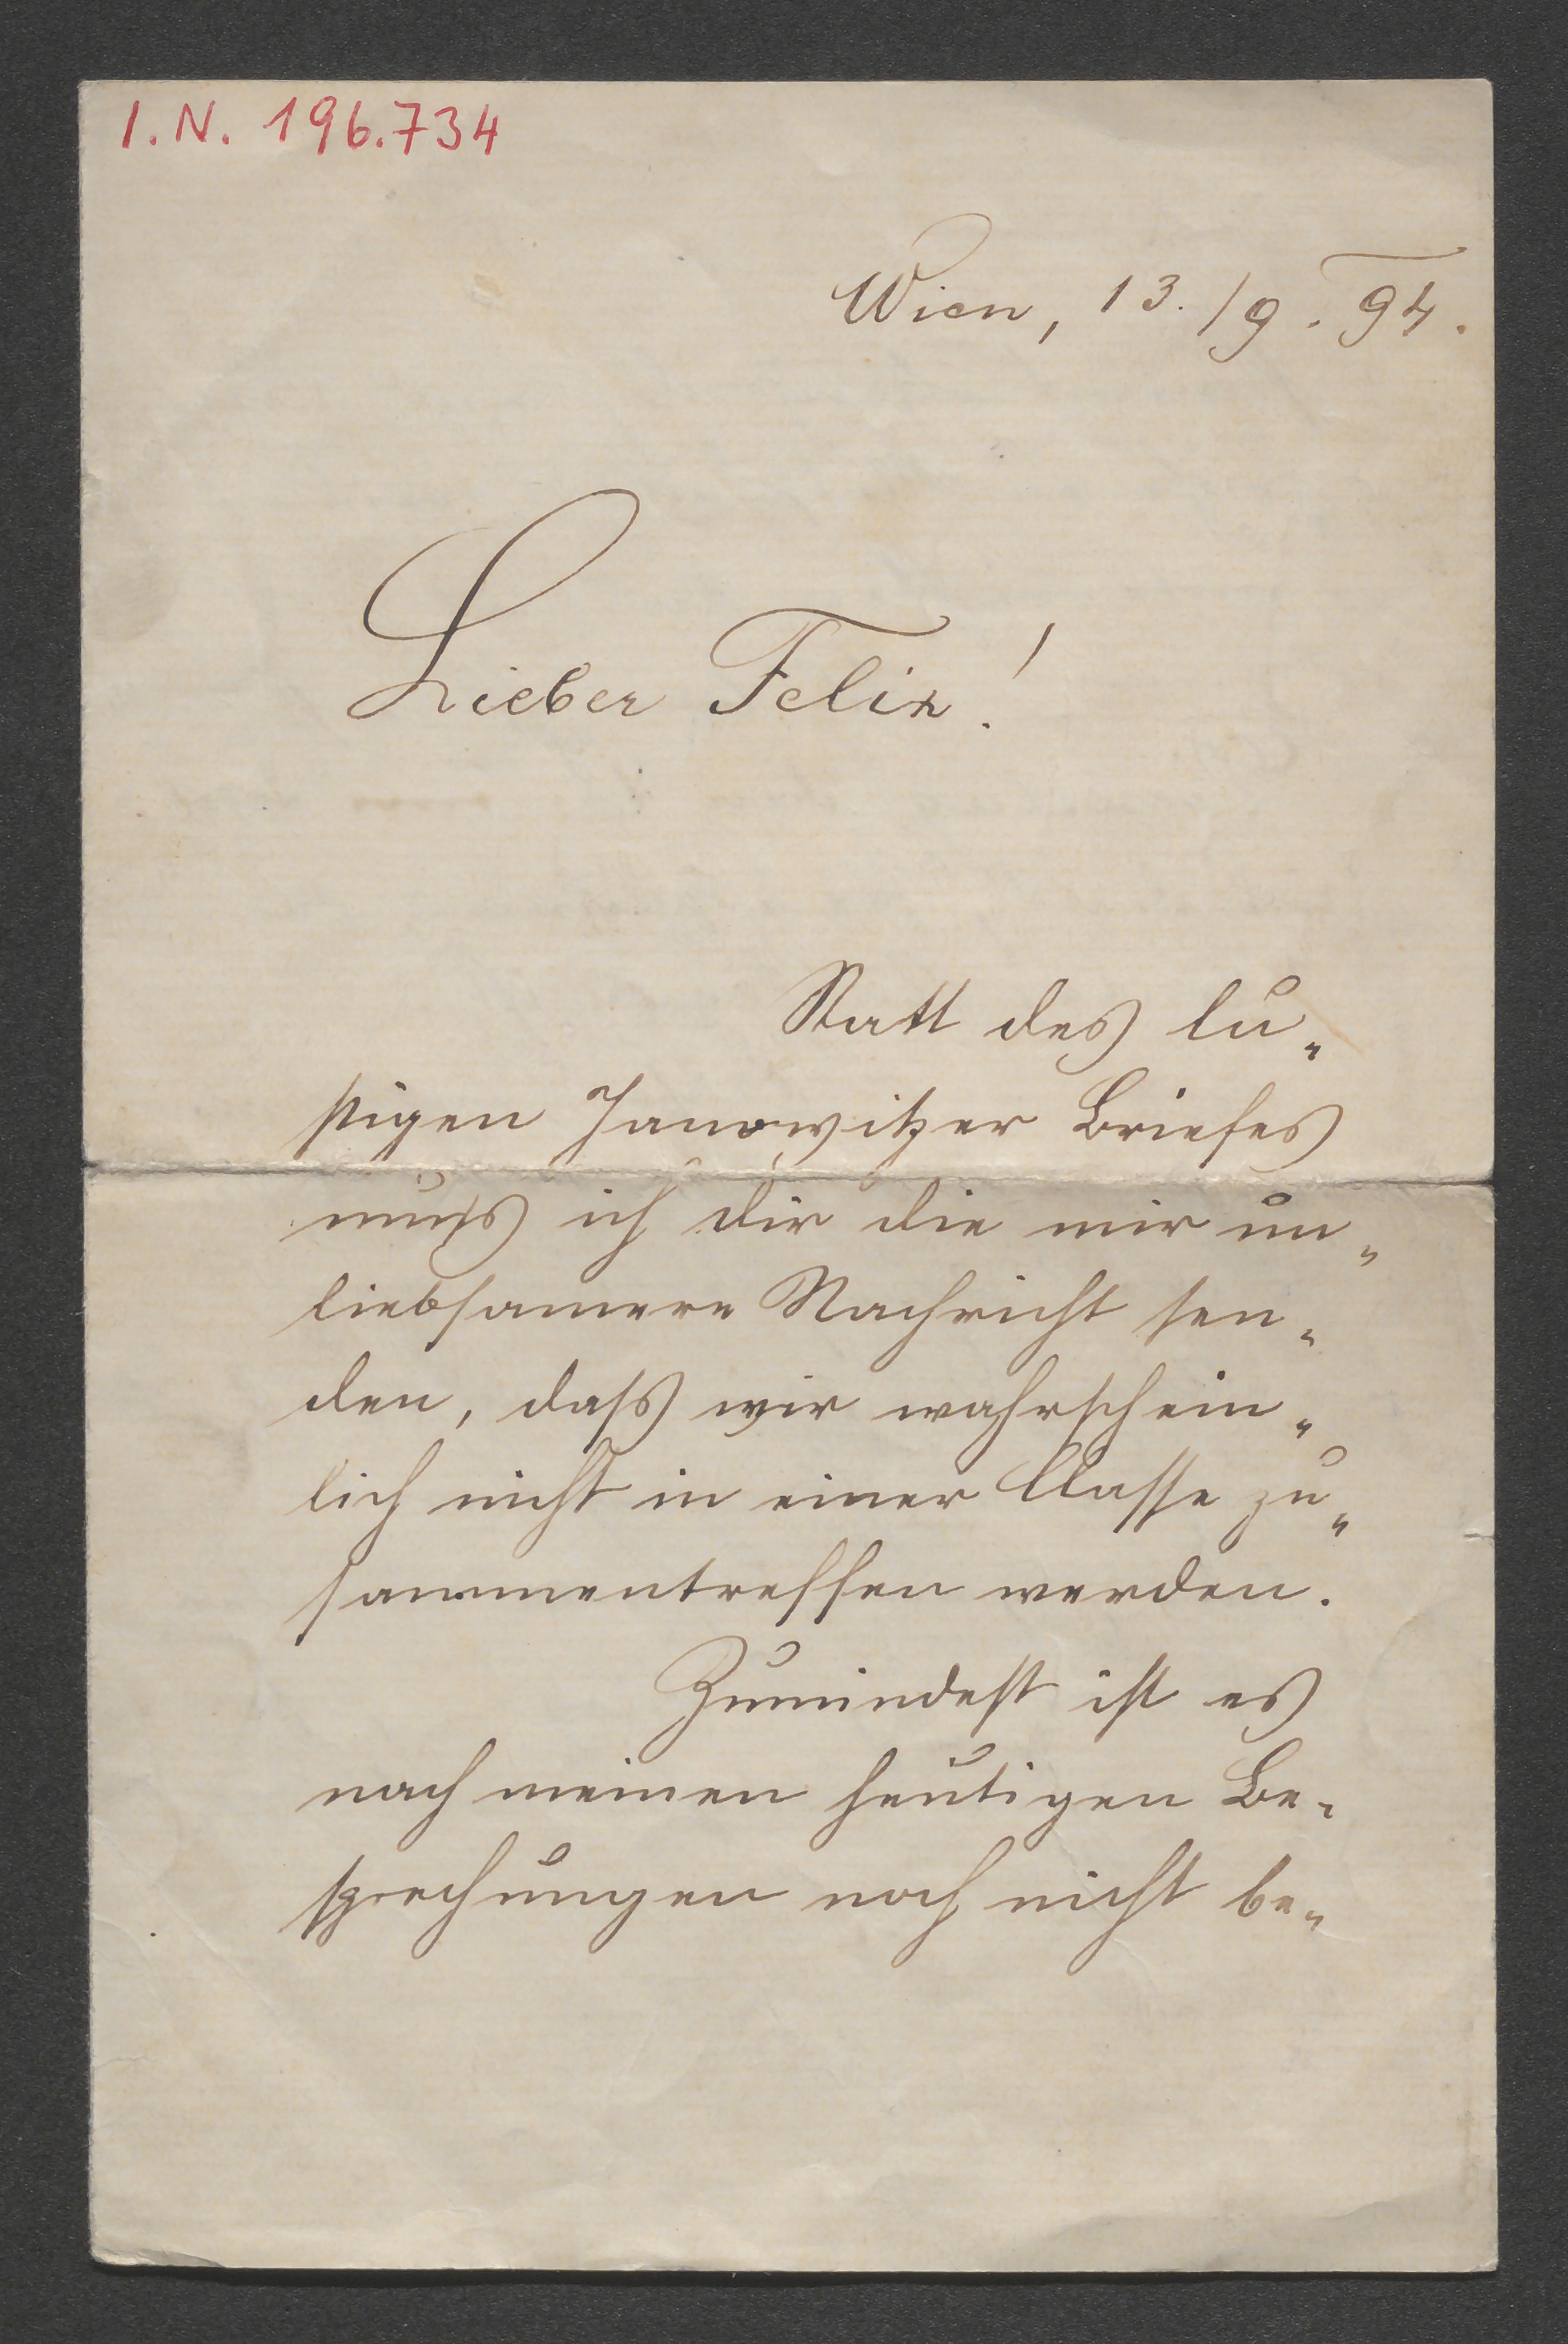 I.N. 196.734
Wien, 13./9. 94.
Lieber Felix!
Statt des lu„
stigen Janowitzer Briefes
muſs ich dir die mir un„
liebsamere Nachricht sen„
den, daſs wir wahrschein„
lich nicht in einer Classe zu„
sammentreffen werden.
Zumindest ist es
nach meinen heutigen Be„
sprechungen noch nicht be„